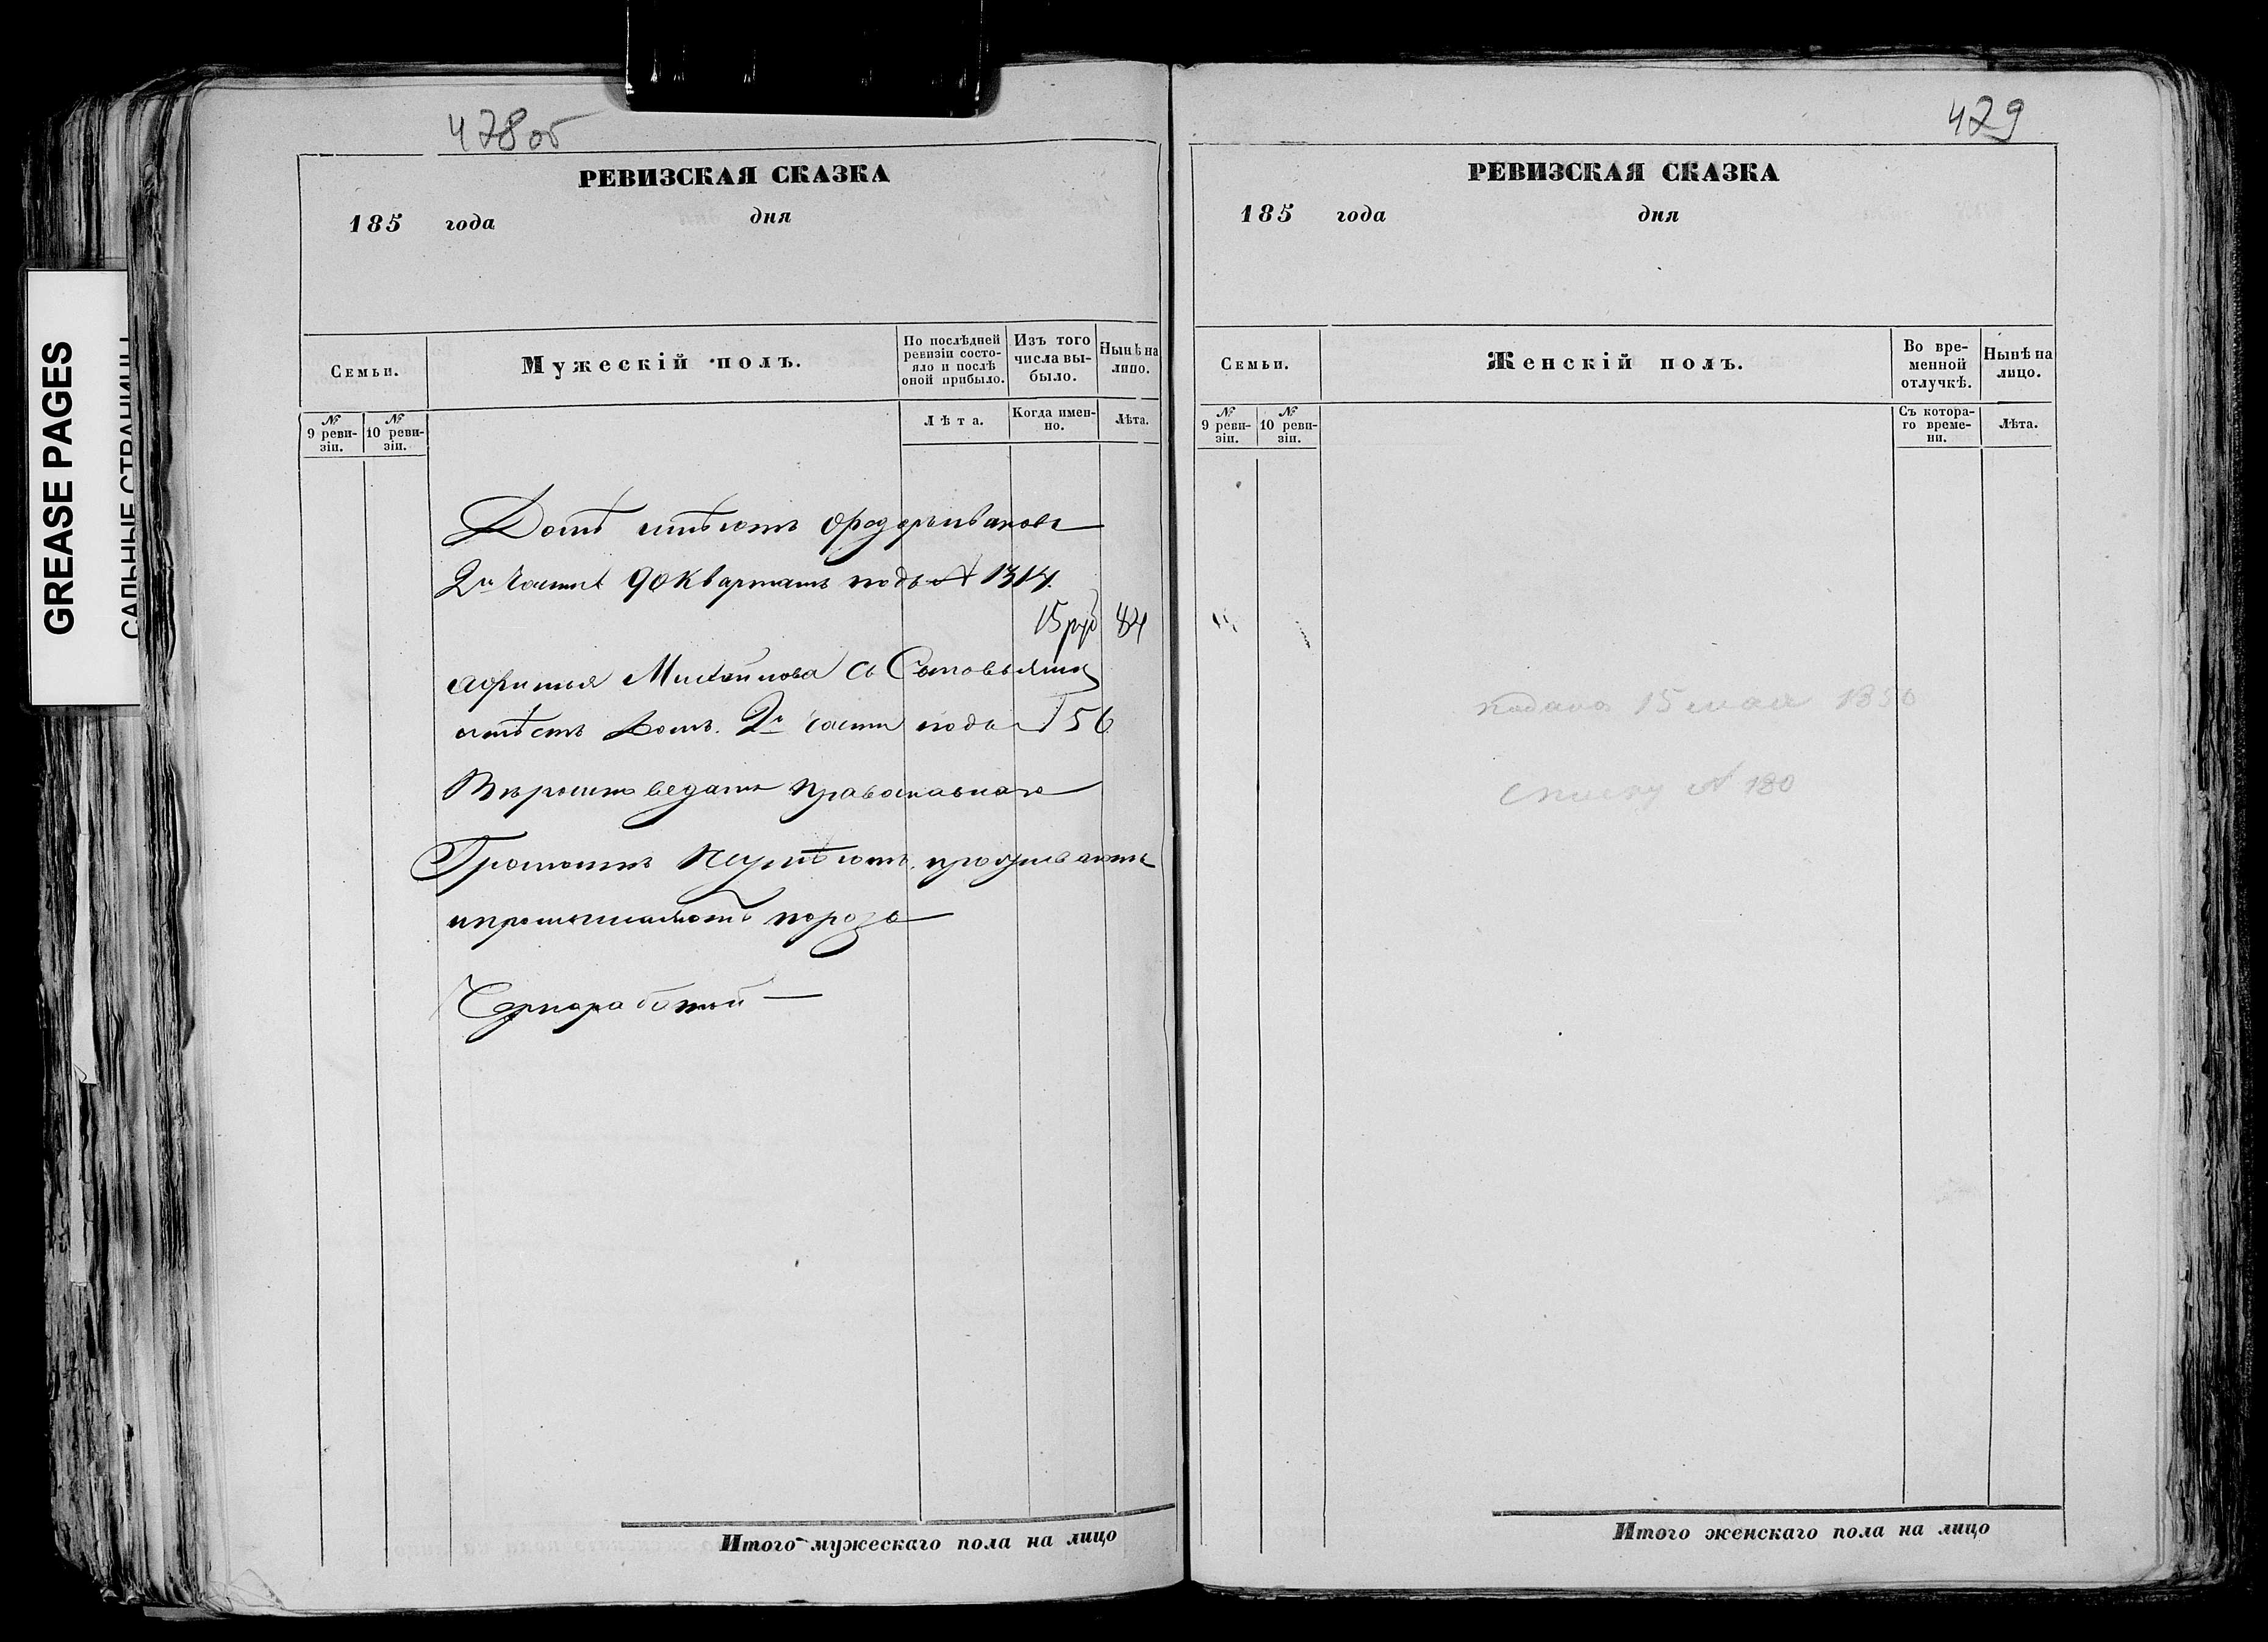 GREASE PAGES
САЛЬНЫЕ СТРАНИЦЫ
478 об
РЕВИЗСКАЯ СКАЗКА
185 года дня
Семьи.
Мужескій полъ.
По послѣдней ревизіи состояло и послѣ оной прибыло.
Изъ того числа выбыло.
Нынѣ на лицо.
№ 9 ревизіи.
№ 10 ревизіи.
Лѣта.
Когда именно.
Лѣта.
Домъ имѣютъ
2й части 90 квартал подъ № 1314.
15 руб 84
Михайлова съ Сыновьями
имѣетъ домъ. 2й части подъ № 56
Вѣроисповеданія православнаго
Грамотѣ неумѣютъ, проживаютъ
ипромышляютъ порознь
Чернаработой —
Итого мужескаго пола на лицо
429
РЕВИЗСКАЯ СКАЗКА
185 года дня
Семьи.
Женскій полъ.
Во временной отлучкѣ.
Нынѣ на лицо.
№ 9 ревизіи.
№ 10 ревизіи.
Съ котораго времени.
Лѣта.
подана 15 мая 1850
списку № 180
Итого женскаго пола на лицо